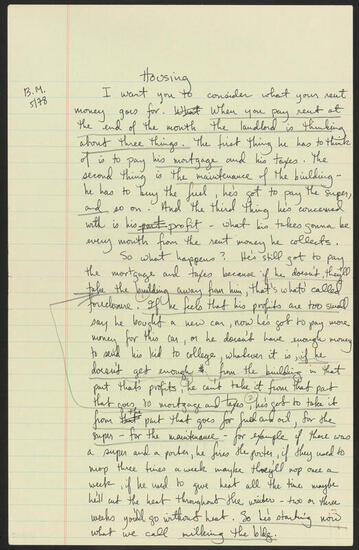 Housing
B.M.
5/78
I want you to consider what your rent
money goes for. What When you pay rent at
the end of the month the landlord is thinking
about three things. The first thing he has to think
of is to pay his mortgage and his taxes. The
second thing is the maintenance of the building -
he has to buy the fuel, he's got to pay the super,
and so on. And the third thing he's concerned
with is his profit - what his takes gonna be
every month from the rent money he collects.
So what happens? He's still got to pay
the mortgage and taxes because if he doesn't, they'll
take the building away from him, that's what's called
foreclosure. If he feels that his profits are too small
say he bought a new car, now he's got to pay more
money for this car, or he doesn't have enough money
to send his kid to college, whatever it is, if he
doesn't get enough $ from the building in that
part that's profits, he can't take it from that part
that goes to mortgage and taxes, he's got to take it
from that part that goes for fuel and oil, for the
super - for the maintenance - for example if there was
a super and a porter, he fires the porter, if they used to
mop three times a week maybe they'll mop once a
week, if he used to give heat all the time maybe
he'll cut the heat throughout the winter - two or three
weeks you'll go without heat. So he's starting now
what we call milking the bldg.